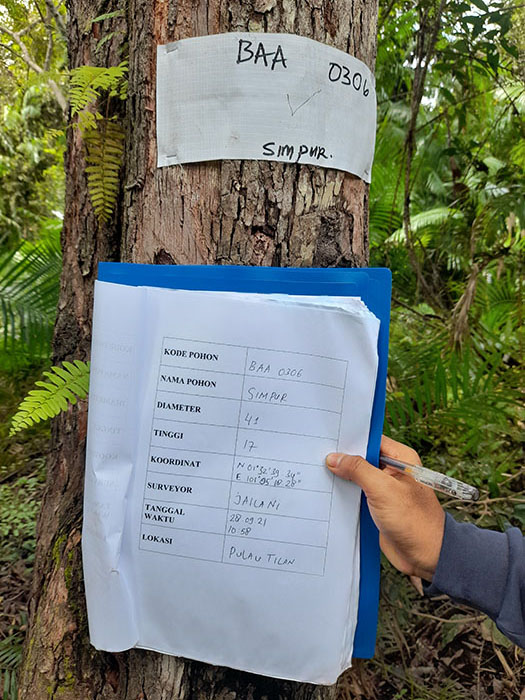 BAA 0306
SIMPUR.
KODE POHON BAA 0306
NAMA POHON SIMPUR
DIAMETER 41
TINGGI 17
KOORDINAT N 01°32'39.34"
E 101°05'18.28"
SURVEYOR JAILANI
TANGGAL 28 09 21
WAKTU 10:58
LOKASI PULAU TILAN